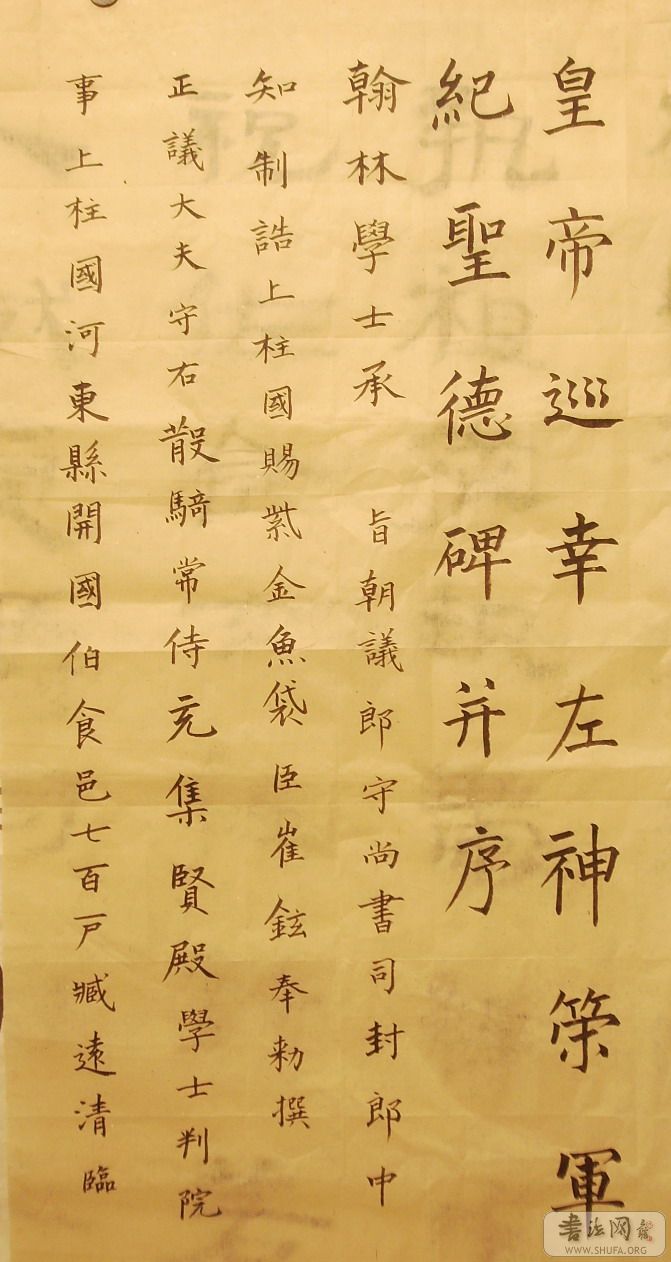 皇帝巡幸左神策軍
紀聖德碑并序
翰林學士承 旨朝議郎守尚書司封郎中
知制誥上柱國賜紫金魚袋臣崔鉉奉勑撰
正議大夫守右散騎常侍充集賢殿學士判院
事上柱國河東縣開國伯食邑七百戶臧遠清臨
書法网
WWW.SHUFA.ORG